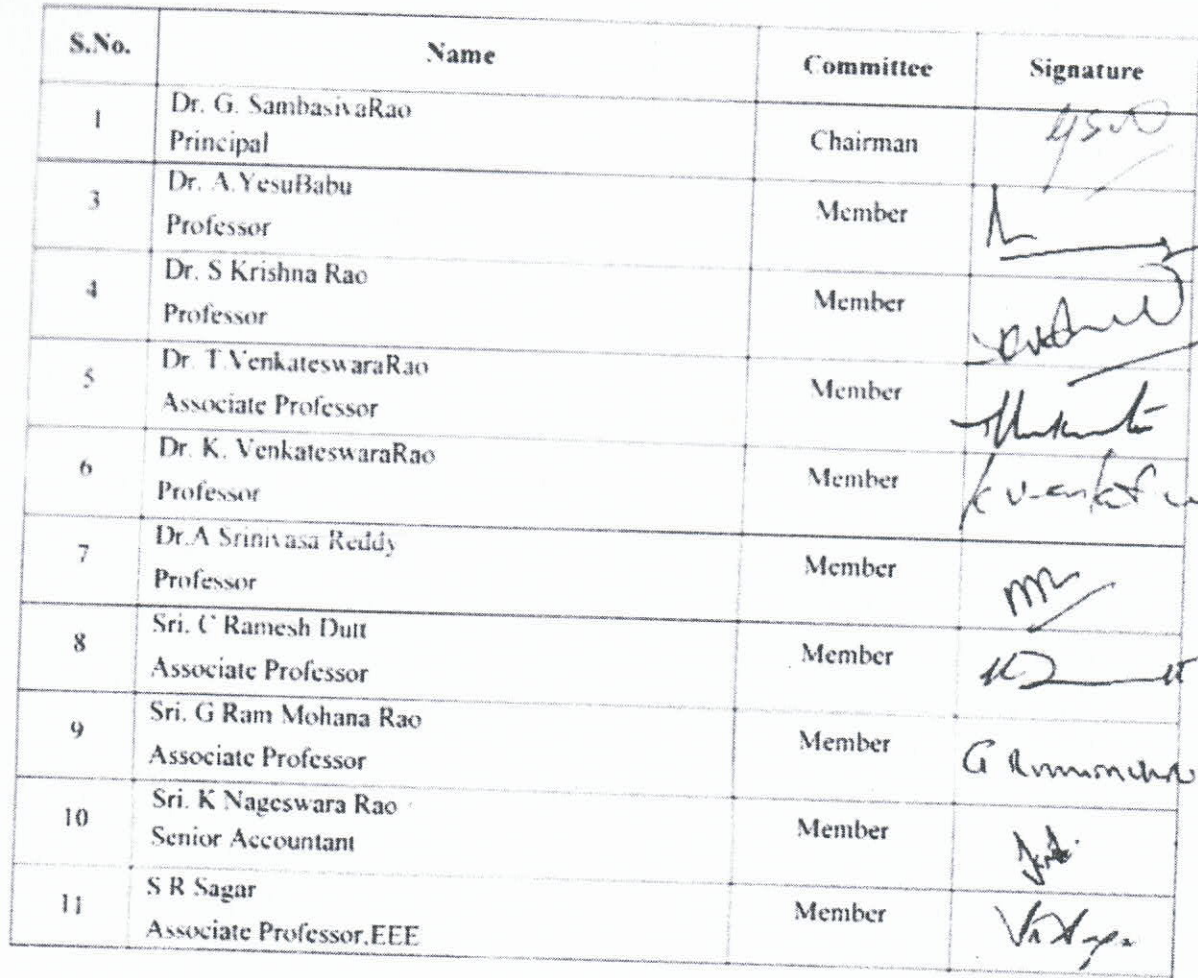 S.No. Name Committee Signature
1 Dr. G. SambasivaRao
Principal Chairman
3 Dr. A.YesuBabu
Professor Member
4 Dr. S Krishna Rao
Professor Member
5 Dr. T.VenkateswaraRao
Associate Professor Member
6 Dr. K. VenkateswaraRao
Professor Member
7 Dr.A Srinivasa Reddy
Professor Member
8 Sri. C Ramesh Dutt
Associate Professor Member
9 Sri. G Ram Mohana Rao
Associate Professor Member
10 Sri. K Nageswara Rao
Senior Accountant Member
11 S R Sagar
Associate Professor,EEE Member